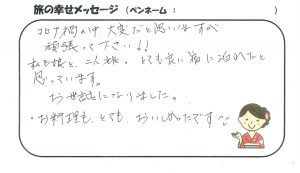 旅の幸せメッセージ (ペンネーム： )
コロナ禍の中 大変だと思いますが
頑張って下さい!!
私も娘と、二人旅。とても良い宿に泊れたと
思っています。
お世話になりました。
・お料理も、とても、おいしかったです